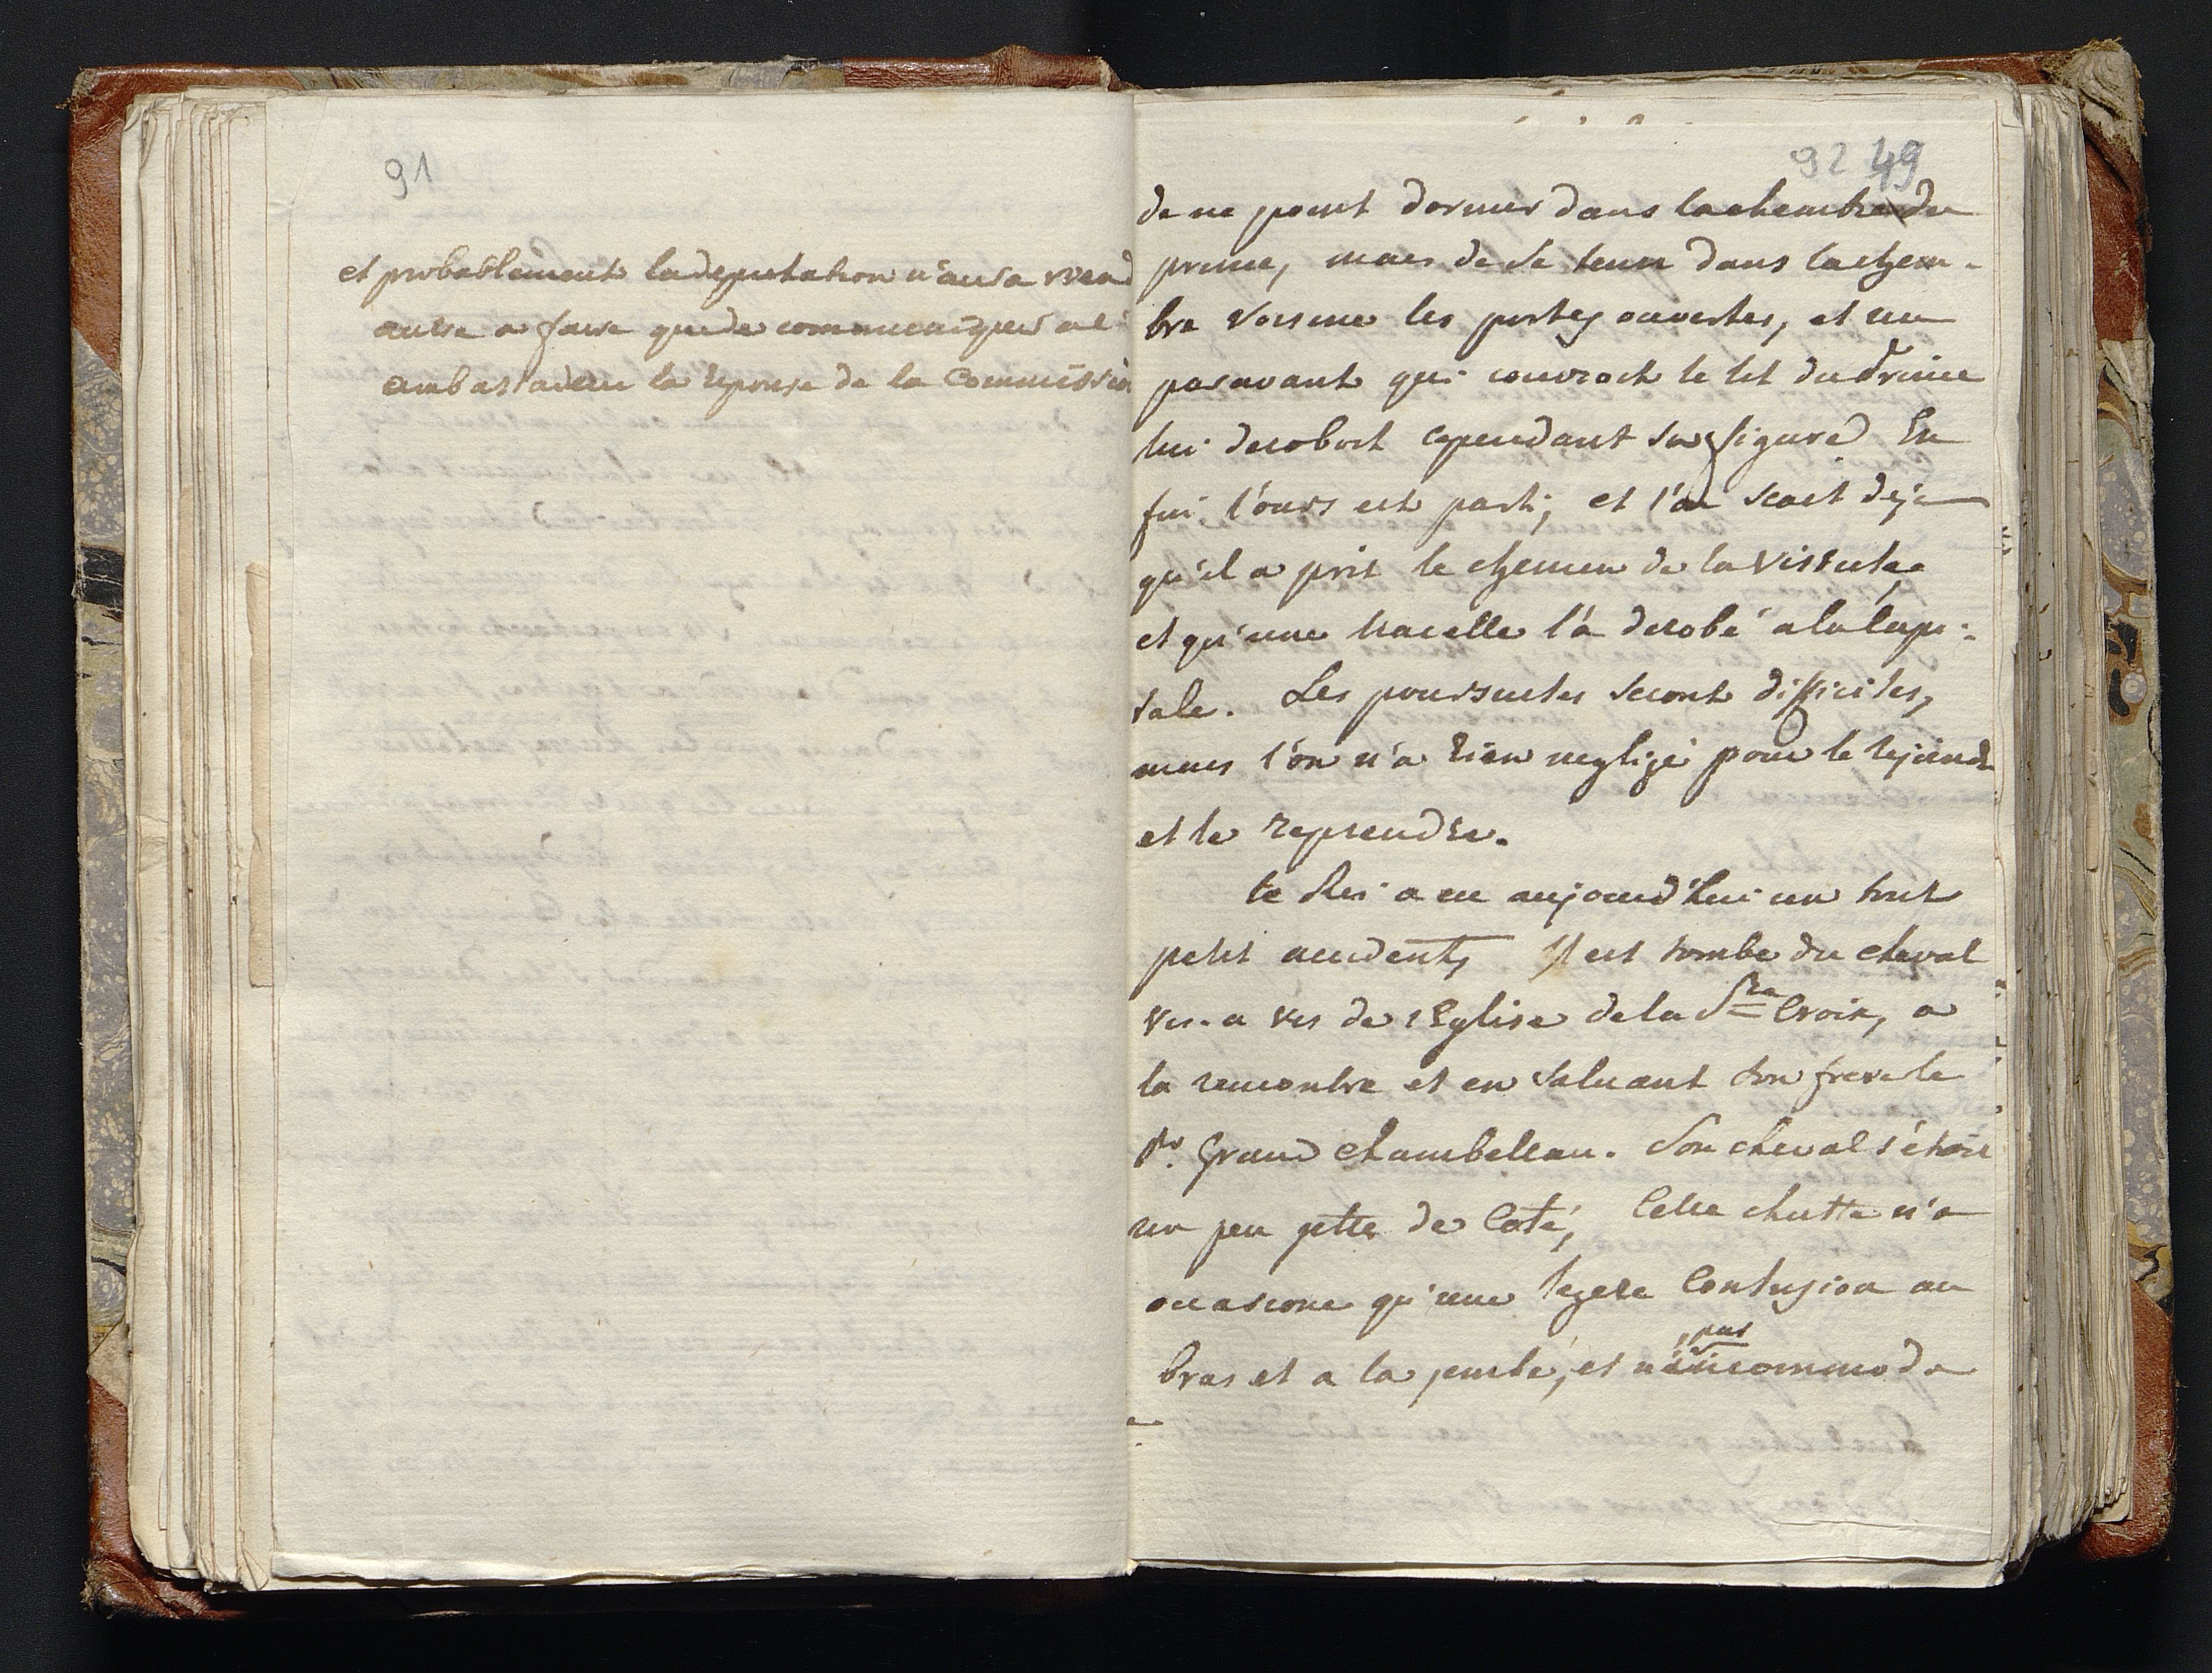 91
et probablement la deputation n'aura rien d
autre a faire que de communiquer a l'
ambassadeur la reponse de la Commission
92 49
de ne point dormir dans la chambre du
prince, mais de se tenir dans la cham-
bre voisine les portes ouvertes, et un
paravant qui couvroit le lit du Prince
lui deroboit cependant sa figure En
fin l'ours est parti, et l'on scait deja
qu'il a prit le chemin de la Vistule,
et qu'une nacelle l'a derobé a la capi-
tale. Les poursuites seront difficiles,
mais l'on n'a rien negligé pour le rejoindre
et le reprendre.
le Roi a eu aujourd'hui un tout
petit accident, Il est tombe du cheval
vis-a vis de l'Eglise de la Ste Croix, a
la rencontre et en saluant son frere le
Pr. Grand chambellan. Son cheval s'étoit
un peu jette de Coté, Cette chutte n'a
occasione qu'une legere Contusion au
bras et a la jambe, et n'incommoda
pas